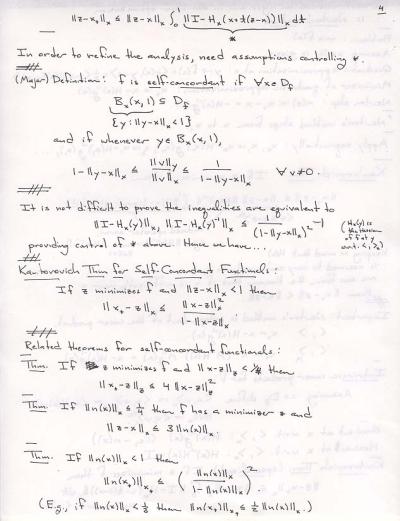 4
‖z-x₊‖ₓ ≤ ‖z-x‖ₓ ∫₀¹ ‖I-Hₓ(x+t(z-x))‖ₓ dt
*
In order to refine the analysis, need assumptions controlling *.
(Major) Definition: f is self-concordant if ∀x∈D_f
Bₓ(x,1) ⊆ D_f
{y: ‖y-x‖ₓ<1}
and if whenever y∈Bₓ(x,1),
1-‖y-x‖ₓ ≤ ‖v‖_y/‖v‖ₓ ≤ 1/(1-‖y-x‖ₓ) ∀v≠0.
It is not difficult to prove the inequalities are equivalent to
‖I-Hₓ(y)‖ₓ, ‖I-Hₓ(y)⁻¹‖ₓ ≤ 1/(1-‖y-x‖ₓ)² -1
(Hₓ(y) is
the Hessian
of f at y
w.r.t. <,>ₓ)
providing control of * above. Hence we have...
Kantorovich Thm for Self-Concordant Functionals:
If z minimizes f and ‖z-x‖ₓ<1 then
‖x₊-z‖ₓ ≤ ‖x-z‖ₓ²/(1-‖x-z‖ₓ).
Related theorems for self-concordant functionals:
Thm. If z minimizes f and ‖x-z‖_z < then
‖x₊-z‖_z ≤ 4‖x-z‖_z²
Thm. If ‖n(x)‖ₓ ≤ ¼ then f has a minimizer z and
‖z-x‖ₓ ≤ 3‖n(x)‖ₓ.
Thm. If ‖n(x)‖ₓ<1 then
‖n(x₊)‖ₓ₊ ≤ (‖n(x)‖ₓ/(1-‖n(x)‖ₓ))².
(E.g., if ‖n(x)‖ₓ< then ‖n(x₊)‖ₓ₊ ≤ ½‖n(x)‖ₓ.)